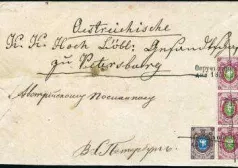 Oestreichische
K. K. Hoch Löbl: Gesandtschaft
zu Petersburg
Австрийскому Посланнику
В С. Петербургъ